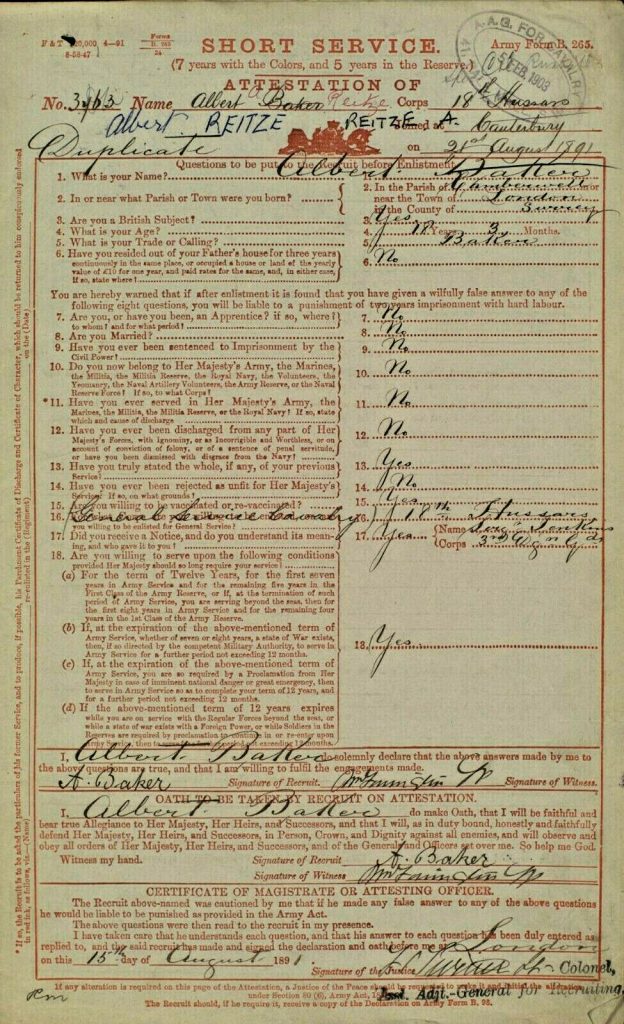 F & T 120,000 4—91
8-58-47
Forms
B. 265
24
Army Form B. 265.
SHORT SERVICE.
(7 years with the Colors, and 5 years in the Reserve.)
A.A.G. FOR CAVALRY
FEB. 1903
ATTESTATION OF
No. 3763 Name Albert Baker Reitze Corps 18th Hussars
Albert. REITZE REITZE A.
Joined at Canterbury
Duplicate
on 21st August 1891
Questions to be put to the Recruit before Enlistment.
1. What is your Name?
1. Albert Baker
2. In or near what Parish or Town were you born?
2. In the Parish of Camberwell or
near the Town of London
in the County of Surrey
3. Are you a British Subject?
3. Yes
4. What is your Age?
4. 18 Years 3 Months.
5. What is your Trade or Calling?
5. Baker
6. Have you resided out of your Father's house for three years
continuously in the same place, or occupied a house or land of the yearly
value of £10 for one year, and paid rates for the same, and, in either case,
If so, state where?
6. No
You are hereby warned that if after enlistment it is found that you have given a wilfully false answer to any of the
following eight questions, you will be liable to a punishment of two years imprisonment with hard labour.
7. Are you, or have you been, an Apprentice? if so, where?
to whom? and for what period?
7. No
8. Are you Married?
8. No
9. Have you ever been sentenced to Imprisonment by the
Civil Power?
9. No
10. Do you now belong to Her Majesty's Army, the Marines,
the Militia, the Militia Reserve, the Royal Navy, the Volunteers, the
Yeomanry, the Naval Artillery Volunteers, the Army Reserve, or the Naval
Reserve Force? If so, to what Corps?
10. No
*11. Have you ever served in Her Majesty's Army, the
Marines, the Militia, the Militia Reserve, or the Royal Navy? If so, state
which and cause of discharge
11. No
12. Have you ever been discharged from any part of Her
Majesty's Forces, with ignominy, or as Incorrigible and Worthless, or on
account of conviction of felony, or of a sentence of penal servitude,
or have you been dismissed with disgrace from the Navy?
12. No
13. Have you truly stated the whole, if any, of your previous
Service?
13. Yes
14. Have you ever been rejected as unfit for Her Majesty's
Service? If so, on what grounds?
14. No
15. Are you willing to be vaccinated or re-vaccinated?
15. Yes
General Service Cavalry
you willing to be enlisted for General Service?
16. 18th Hussars
17. Did you receive a Notice, and do you understand its mean-
ing, and who gave it to you?
17. Yes
Name
Corps
18. Are you willing to serve upon the following conditions
provided Her Majesty should so long require your service?
(a) For the term of Twelve Years, for the first seven
years in Army Service and for the remaining five years in the
First Class of the Army Reserve, or if, at the termination of such
period of Army Service, you are serving beyond the seas, then for
the first eight years in Army Service and for the remaining four
years in the 1st Class of the Army Reserve.
(b) If, at the expiration of the above-mentioned term of
Army Service, whether of seven or eight years, a state of War exists,
then, if so directed by the competent Military Authority, to serve in
Army Service for a further period not exceeding 12 months.
18. Yes
(c) If, at the expiration of the above-mentioned term of
Army Service, you are so required by a Proclamation from Her
Majesty in case of imminent national danger or great emergency, then
to serve in Army Service so as to complete your term of 12 years, and
for a further period not exceeding 12 months.
(d) If the above-mentioned term of 12 years expires
while you are on service with the Regular Forces beyond the seas, or
while a state of war exists with a Foreign Power, or while Soldiers in the
Reserves are required by proclamation to continue in or re-enter upon
Army Service, then to period not exceeding 12 months.
I, Albert Baker do solemnly declare that the above answers made by me to
the above questions are true, and that I am willing to fulfil the engagements made.
A. Baker Signature of Recruit. Signature of Witness.
OATH TO BE TAKEN BY RECRUIT ON ATTESTATION.
I, Albert Baker do make Oath, that I will be faithful and
bear true Allegiance to Her Majesty, Her Heirs, and Successors, and that I will, as in duty bound, honestly and faithfully
defend Her Majesty, Her Heirs, and Successors, in Person, Crown, and Dignity against all enemies, and will observe and
obey all orders of Her Majesty, Her Heirs, and Successors, and of the Generals and Officers set over me. So help me God.
Witness my hand. Signature of Recruit A. Baker
Signature of Witness
CERTIFICATE OF MAGISTRATE OR ATTESTING OFFICER.
The Recruit above-named was cautioned by me that if he made any false answer to any of the above questions
he would be liable to be punished as provided in the Army Act.
The above questions were then read to the recruit in my presence.
I have taken care that he understands each question, and that his answer to each question has been duly entered as
replied to, and the said recruit has made and signed the declaration and oath before me at London
on this 15th day of August 1891
Signature of the Justice Colonel,
Adjt.-General for Recruiting.
If any alteration is required on this page of the Attestation, a Justice of the Peace should be requested to make it and initial the alteration
under Section 80 (6), Army Act,
The Recruit should, if he require it, receive a copy of the Declaration on Army Form B. 93.